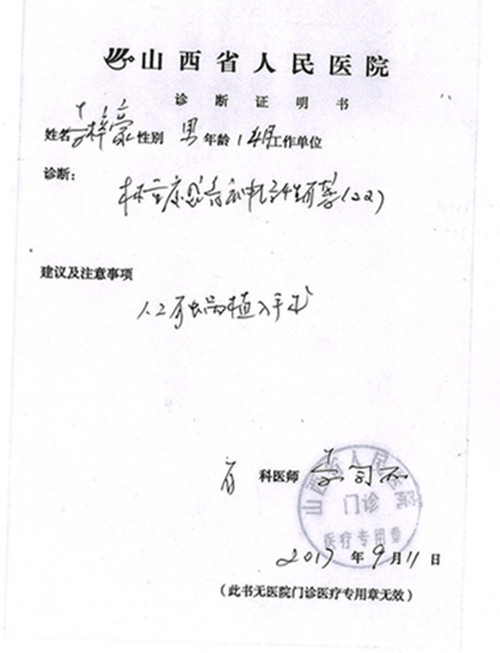 山西省人民医院
诊断证明书
姓名 李梓豪 性别 男 年龄 1岁 工作单位
诊断：
极重度感音神经性耳聋(双)
建议及注意事项
人工耳蜗植入手术
科医师 李
山西省人民医院
门诊
医疗专用章
2017年9月11日
(此书无医院门诊医疗专用章无效)